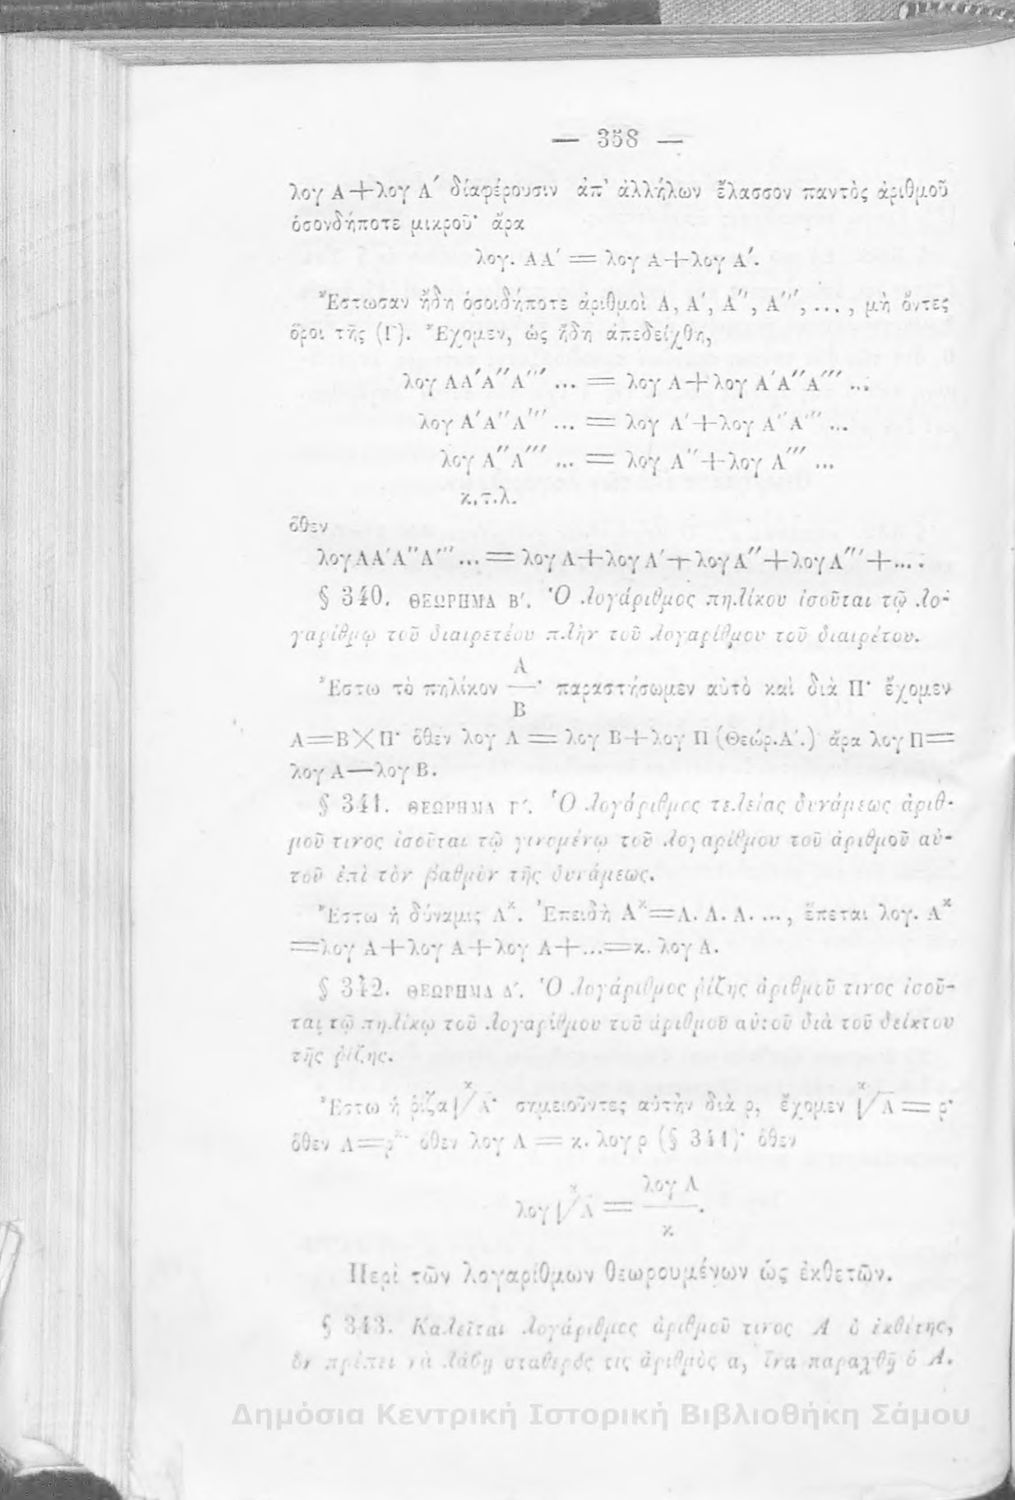 — 358 —
λογ Α+λογ Α′ διαφέρουσιν ἀπ' ἀλλήλων ἔλασσον παντὸς ἀριθμοῦ
ὁσονδήποτε μικροῦ· ἄρα
λογ. ΑΑ′ = λογ Α+λογ Α′.
Ἔστωσαν ἤδη ὁσοιδήποτε ἀριθμοὶ Α, Α′, Α″, Α‴, ..., μὴ ὄντες
ὅροι τῆς (Γ). Ἔχομεν, ὡς ἤδη ἀπεδείχθη,
λογ ΑΑ′Α″Α‴ ... = λογ Α+λογ Α′Α″Α‴ ...
λογ Α′Α″Α‴ ... = λογ Α′+λογ Α″Α‴ ...
λογ Α″Α‴ ... = λογ Α″+λογ Α‴ ...
κ.τ.λ.
ὅθεν
λογΑΑ′Α″Α‴ ... = λογΑ+λογΑ′+λογΑ″+λογΑ‴+....
§ 340. ΘΕΩΡΗΜΑ Β′. Ὁ λογάριθμος πηλίκου ἰσοῦται τῷ λο-
γαρίθμῳ τοῦ διαιρετέου πλὴν τοῦ λογαρίθμου τοῦ διαιρέτου.
Ἔστω τὸ πηλίκον Α/Β· παραστήσωμεν αὐτὸ καὶ διὰ Π· ἔχομεν
Α=Β×Π· ὅθεν λογ Α = λογ Β+λογ Π (Θεώρ.Α′.) ἄρα λογ Π=
λογ Α—λογ Β.
§ 341. ΘΕΩΡΗΜΑ Γ′. Ὁ λογάριθμος τελείας δυνάμεως ἀριθ-
μοῦ τινος ἰσοῦται τῷ γινομένῳ τοῦ λογαρίθμου τοῦ ἀριθμοῦ αὐ-
τοῦ ἐπὶ τὸν βαθμὸν τῆς δυνάμεως.
Ἔστω ἡ δύναμις Αˣ. Ἐπειδὴ Αˣ=Α. Α. Α. ..., ἕπεται λογ. Αˣ
=λογ Α+λογ Α+λογ Α+...=κ. λογ Α.
§ 342. ΘΕΩΡΗΜΑ Δ′. Ὁ λογάριθμος ῥίζης ἀριθμοῦ τινος ἰσοῦ-
ται τῷ πηλίκῳ τοῦ λογαρίθμου τοῦ ἀριθμοῦ αὐτοῦ διὰ τοῦ δείκτου
τῆς ῥίζης.
Ἔστω ἡ ῥίζα ˣ√Α· σημειοῦντες αὐτὴν διὰ ρ, ἔχομεν ˣ√Α = ρ·
ὅθεν Α=ρˣ· ὅθεν λογ Α = κ. λογ ρ (§ 341)· ὅθεν
λογ ˣ√Α = λογ Α/κ.
Περὶ τῶν λογαρίθμων θεωρουμένων ὡς ἐκθετῶν.
§ 343. Καλεῖται λογάριθμος ἀριθμοῦ τινος Α ὁ ἐκθέτης,
ὃν πρέπει νὰ λάβῃ σταθερός τις ἀριθμὸς α, ἵνα παραχθῇ ὁ Α.
Δημόσια Κεντρική Ιστορική Βιβλιοθήκη Σάμου